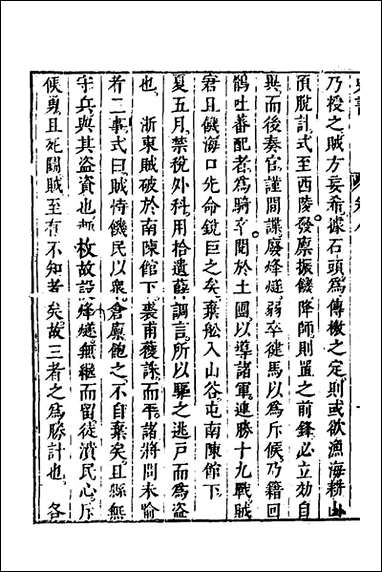 乃授之賊方妄希據石頭為傳檄之定則或欲漁海耕山
頂脫計式至西陵發廪振饑降師則置之前鋒必立効自
與而後奏官謹間諜廢烽燧弱卒徤馬以為斥候乃籍回
鶻吐蕃配者為騎卒閱於土團以導諸軍連勝十九戰賊
窘且饑海口先命銳臣之矣棄舩入山谷屯南陳館下
夏五月禁稅外科用拾遺薛調言所以驅之逃戸而為盜
也 浙東賊破於南陳館下裘甫獲誅而平諸將問未喻
者二事式曰賊恃饑民以衆倉廪飽之不自棄矣且縣無
守兵與其盜資也 枚故設烽燧無継而留徒潰民心斥
候勇且死鬪賊至有不知者矣故三者之為勝計也 各